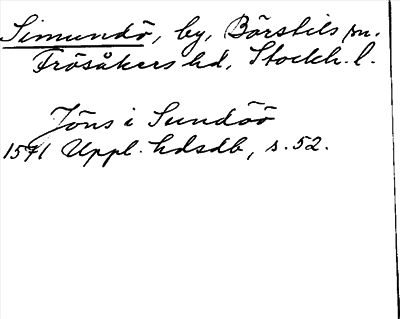 Simundö, by, Börstils sn.
Frösåkers hd, Stockh. l.
Jöns i Sundöö
1571 Uppl. hdsdb, s. 52.